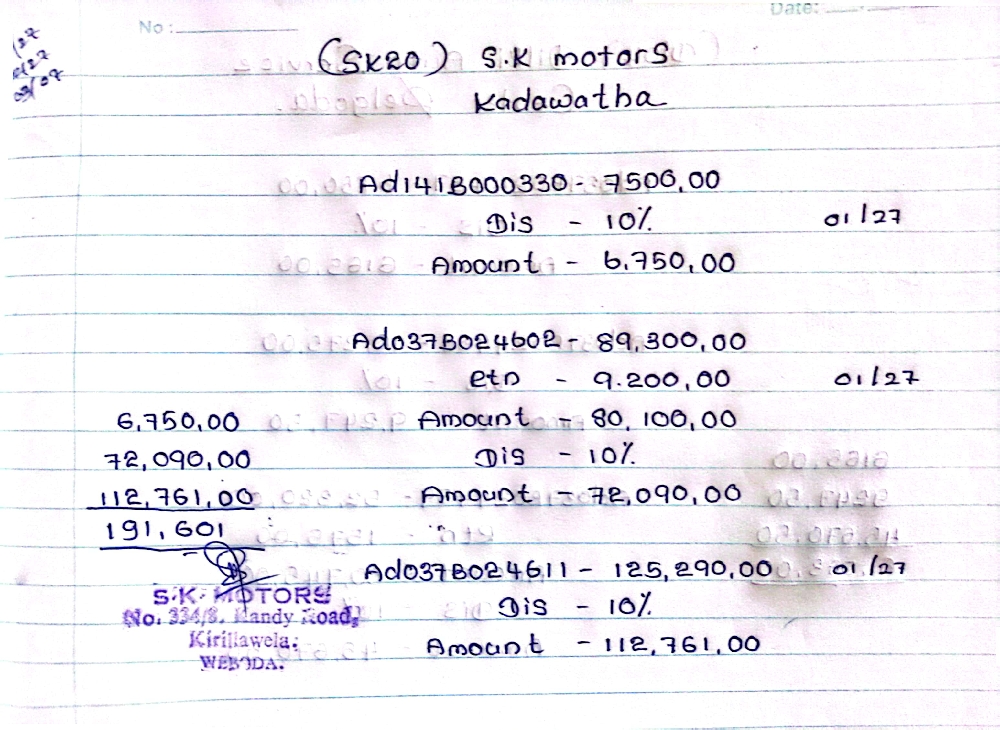 No :
Date:
/27
2/27
03/27
(SK20) S.K motors
Kadawatha
Ad141B000330 - 7500,00
Dis - 10% 01/27
Amount - 6,750,00
Ad037B024602 - 89,300,00
etn - 9.200,00 01/27
6,750,00 Amount - 80,100,00
72,090,00 Dis - 10%
112,761,00 Amount - 72,090,00
191,601
Ad037B024611 - 125,290,00 01/27
S.K. MOTORS Dis - 10%
No. 334/8, Kandy Road,
Kirillawela, Amount - 112,761,00
WEBODA.